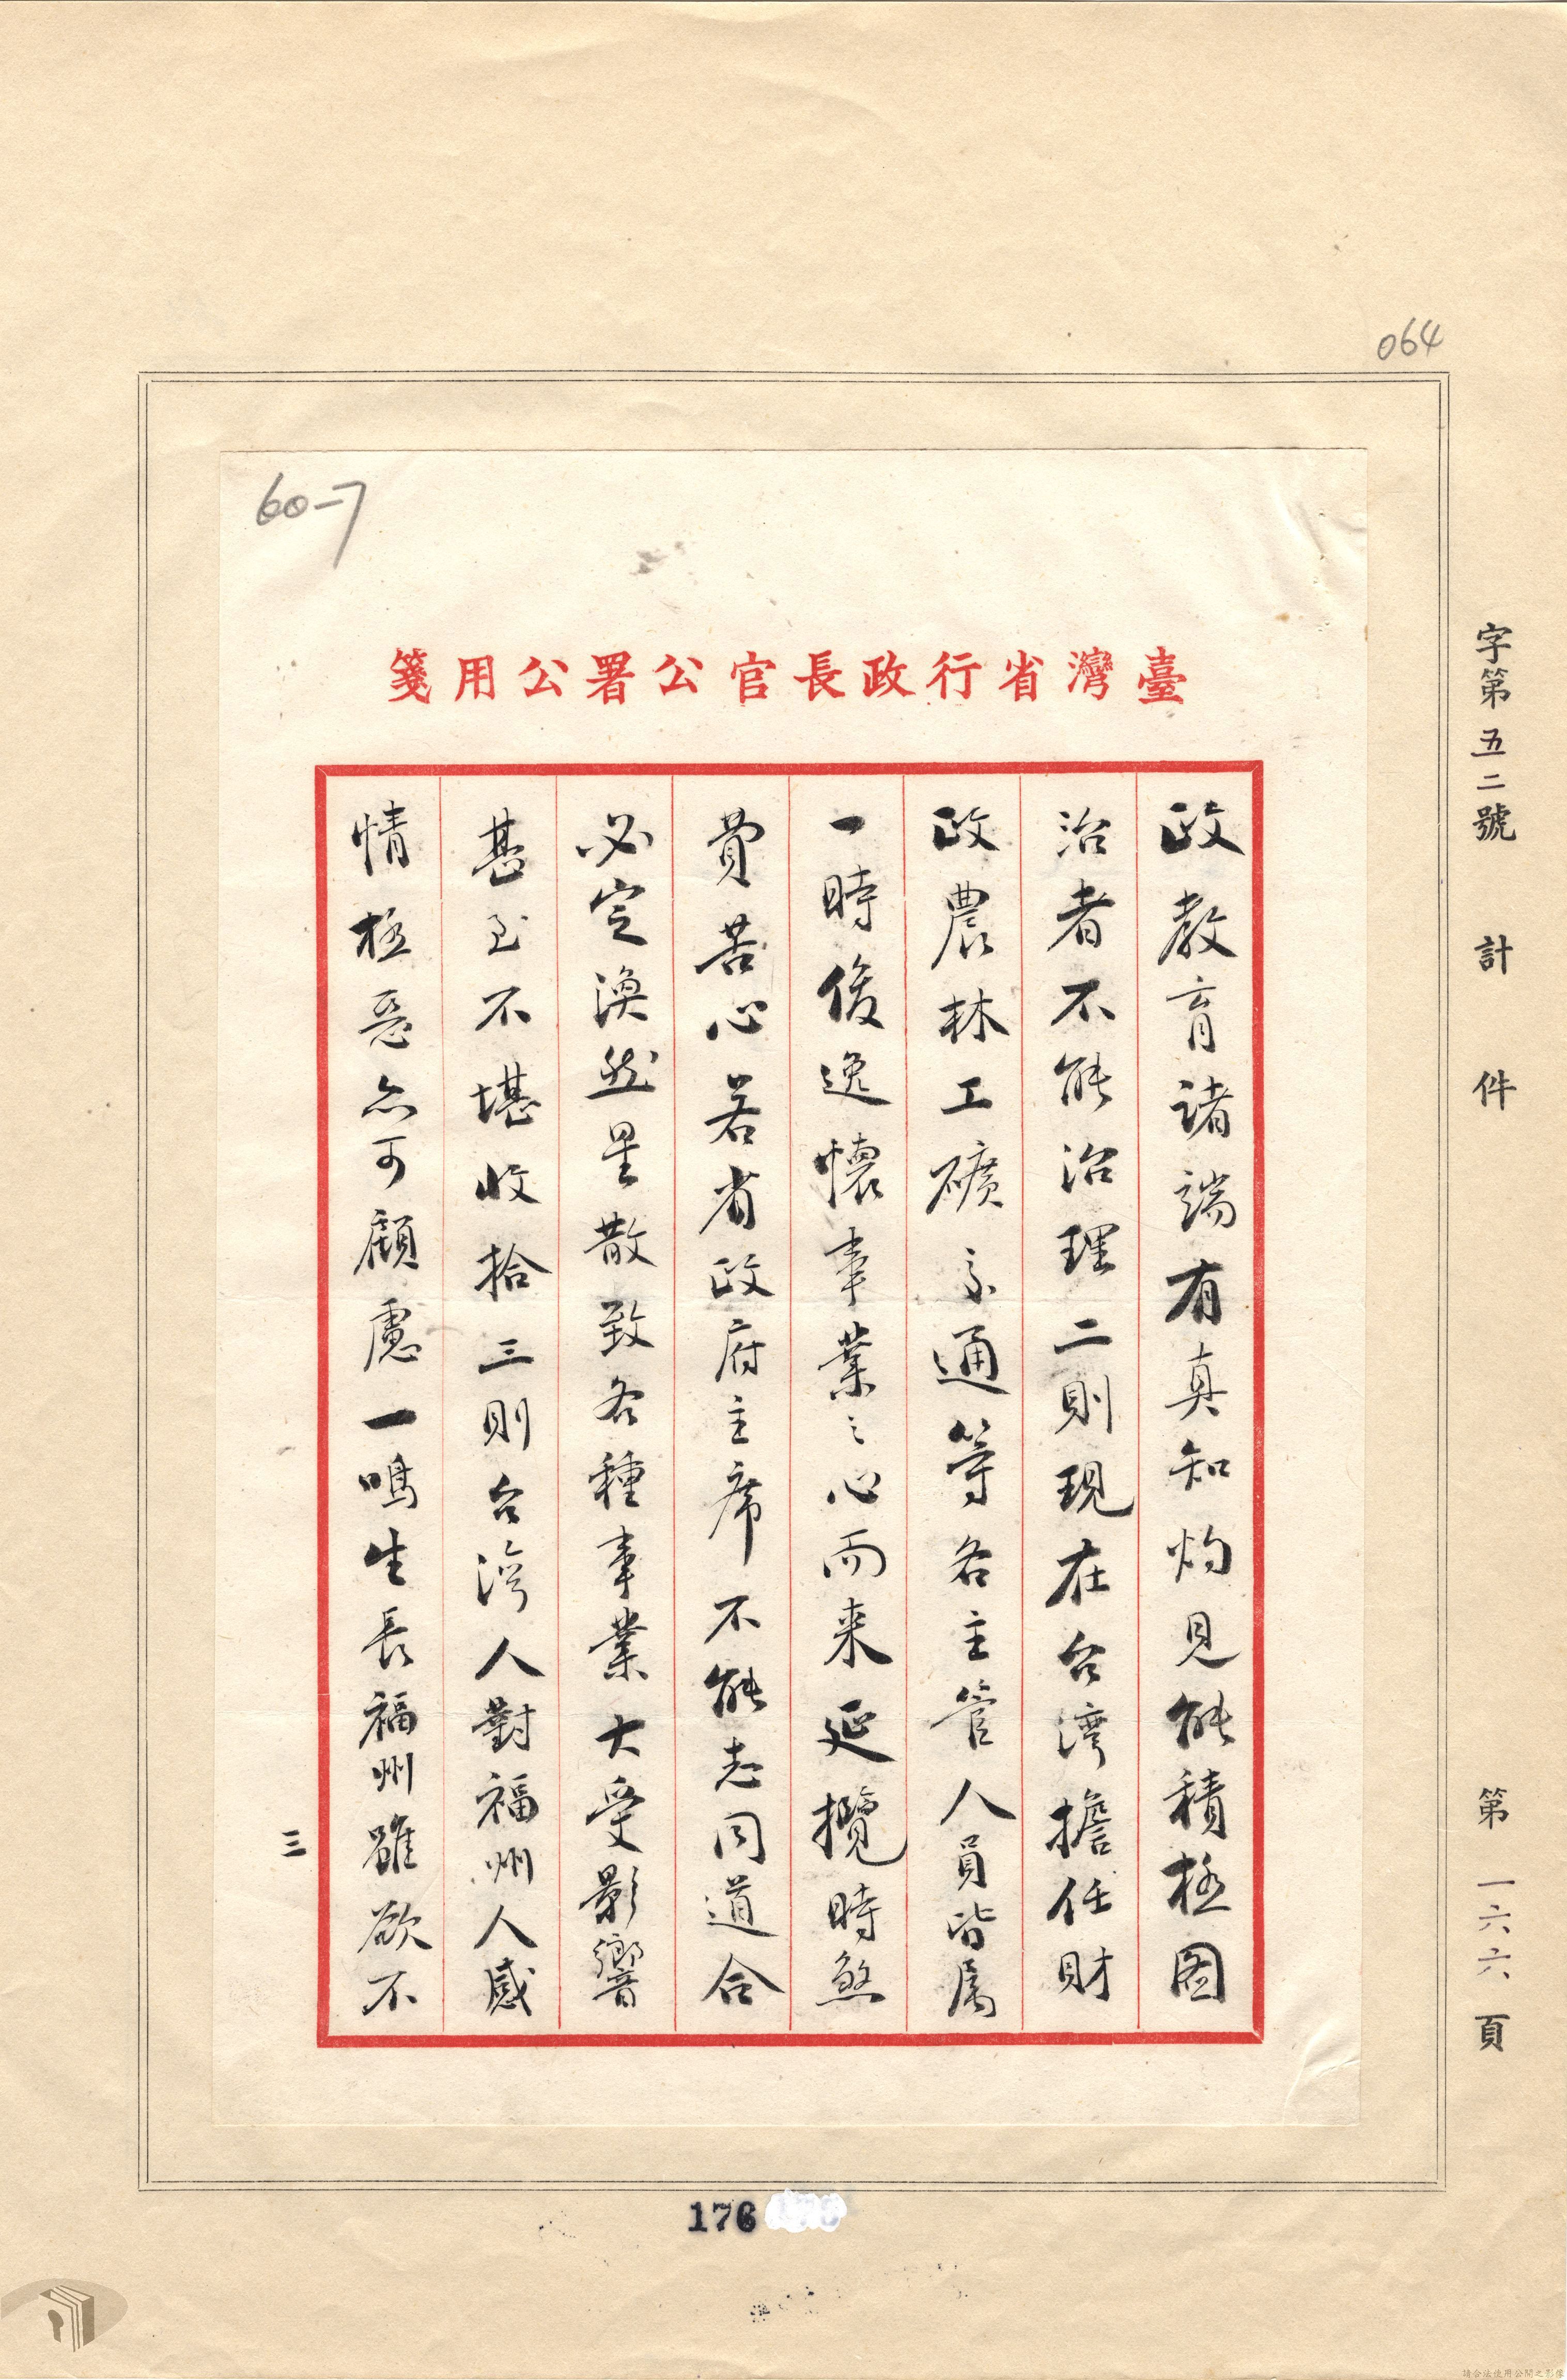 064
60-7
臺灣省行政長官公署公用箋
政教育諸端有真知灼見能積極圖
治者不能治理二則現在台灣擔任財
政農林工礦交通等各主管人員皆属
一時俊逸懷事業之心而来延攬時煞
費苦心若省政府主席不能志同道合
必定渙然星散致各種事業大受影響
甚至不堪收拾三則台灣人對福州人感
情極惡亦可顧慮一鳴生長福州雖欲不
三
字第五二號 計 件 第 一六六 頁
176
請合法使用公開之影像